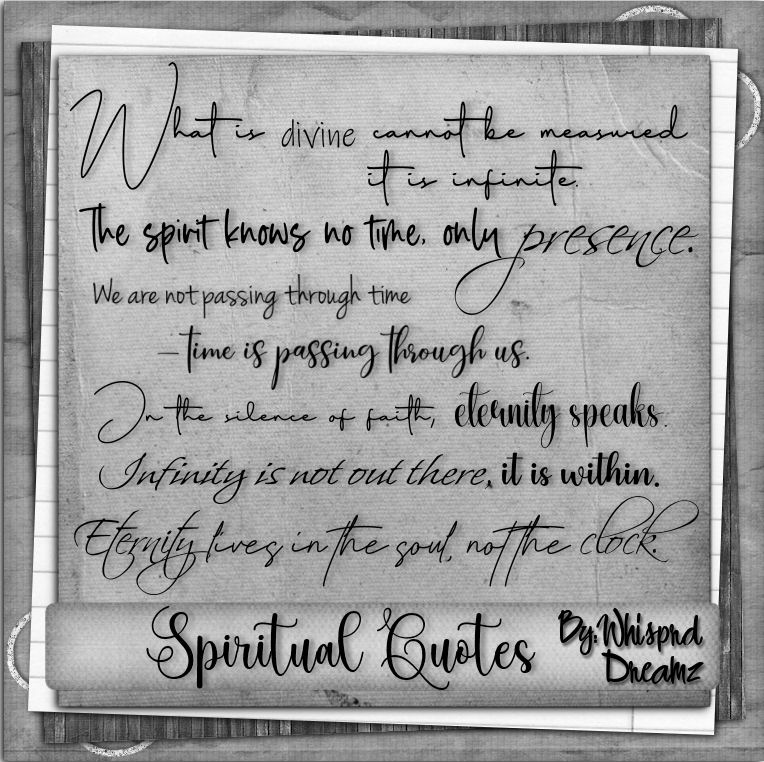 What is divine cannot be measured
it is infinite.
The spirit knows no time, only presence.
We are not passing through time
—time is passing through us.
In the silence of faith, eternity speaks.
Infinity is not out there, it is within.
Eternity lives in the soul, not the clock.
Spiritual Quotes
By: Whisprd
Dreamz